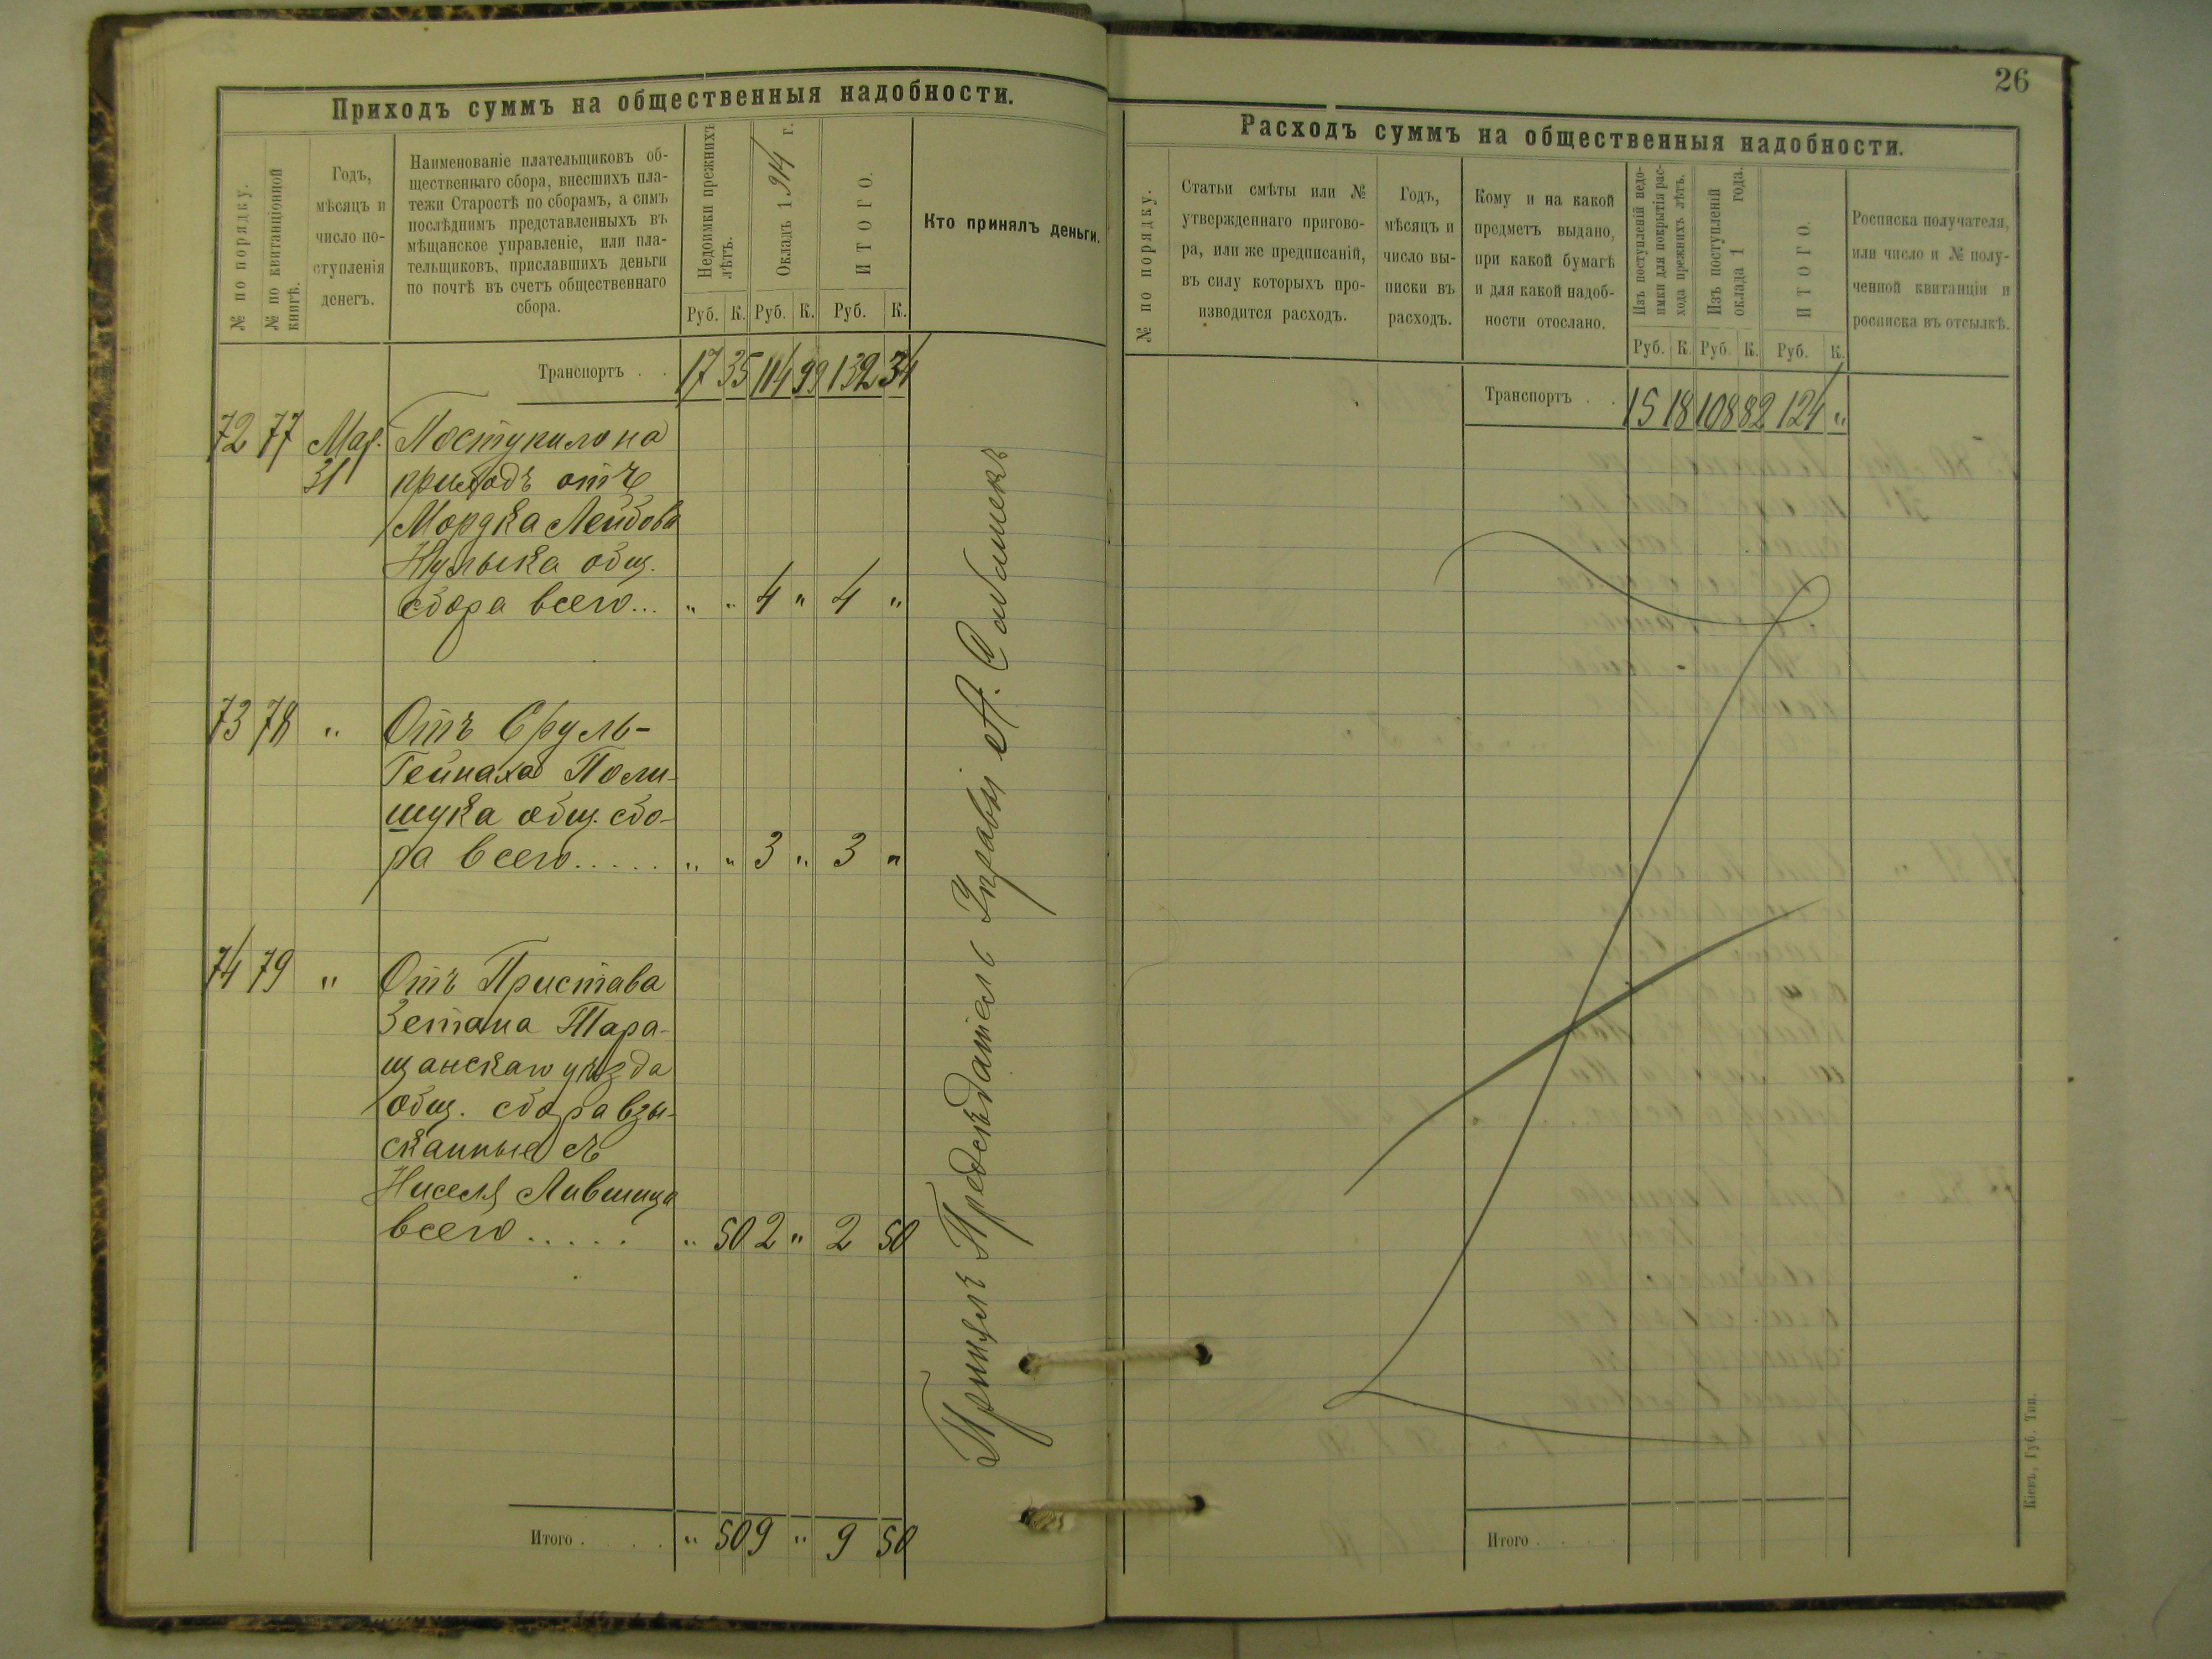 Приходъ суммъ на общественныя надобности.
№ по порядку.
№ по квитанціонной
книгѣ.
Годъ,
мѣсяцъ и
число по-
ступленія
денегъ.
Наименованіе плательщиковъ об-
щественнаго сбора, внесшихъ пла-
тежи Старостѣ по сборамъ, а симъ
послѣднимъ представленныхъ въ
мѣщанское управленіе, или пла-
тельщиковъ, приславшихъ деньги
по почтѣ въ счетъ общественнаго
сбора.
Недоимки прежнихъ
лѣтъ.
Окладъ 1914 г.
ИТОГО.
Руб. К. Руб. К. Руб. К.
Кто принялъ деньги.
Транспортъ . . 17 35 114 99 132 34
72 77 Мар. Поступило на
31 приходъ отъ
Мордка Лейбова
Кулыка общ.
сбора всего... " " 4 " 4 "
73 78 " Отъ Сруль-
Гейнаха Поли-
щука общ. сбо-
ра всего..... " " 3 " 3 "
74 79 " Отъ Пристава
3 стана Тара-
щанскаго уѣзда
общ. сбора взы-
сканные съ
Нисель Лившица
всего..... " 50 2 " 2 50
Принялъ Предсѣдатель Управы
Итого . . . . " 50 9 " 9 50
26
Расходъ суммъ на общественныя надобности.
№ по порядку.
Статьи смѣты или №
утвержденнаго пригово-
ра, или же предписаній,
въ силу которыхъ про-
изводится расходъ.
Годъ,
мѣсяцъ и
число вы-
писки въ
расходъ.
Кому и на какой
предметъ выдано,
при какой бумагѣ
и для какой надоб-
ности отослано.
Изъ поступленій недо-
имки для покрытія рас-
хода прежнихъ лѣтъ.
Изъ поступленій
оклада 1 года.
ИТОГО.
Руб. К. Руб. К. Руб. К.
Росписка получателя,
или число и № полу-
ченной квитанціи и
росписка въ отсылкѣ.
Транспортъ . . 15 18 108 82 124 "
Итого . . . .
Кіевъ, Губ. Тип.